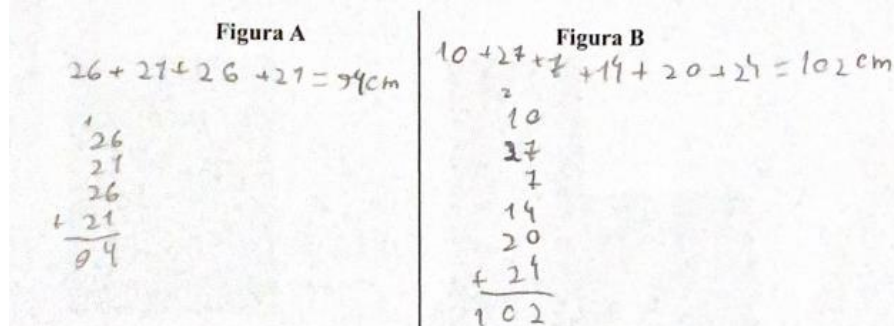 Figura A
26 + 21 + 26 + 21 = 94cm
1
26
21
26
+ 21
94
Figura B
10 + 27 + 7 + 14 + 20 + 24 = 102 cm
2
10
27
7
14
20
+ 24
102